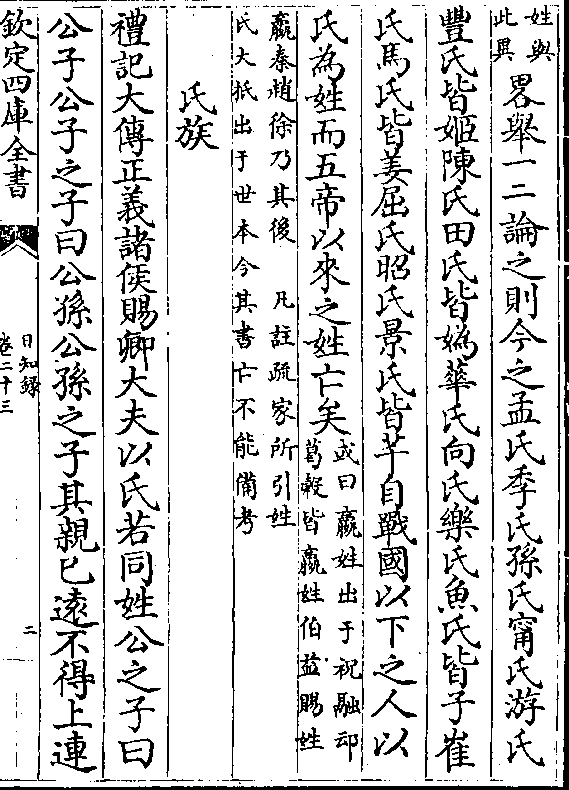 姓與此異畧舉一二論之則今之孟氏季氏孫氏甯氏游氏
豐氏皆姬陳氏田氏皆媯華氏向氏樂氏魚氏皆子崔
氏馬氏皆姜屈氏昭氏景氏皆芊自戰國以下之人以
氏為姓而五帝以來之姓亡矣或曰嬴姓出于祝融邧葛穀皆嬴姓伯益賜姓
嬴秦趙徐乃其後 凡註疏家所引姓氏大抵出于世本今其書亡不能備考
氏族
禮記大傳正義諸侯賜卿大夫以氏若同姓公之子曰
公子公子之子曰公孫公孫之子其親已遠不得上連
欽定四庫全書
日知録
卷二十三
二